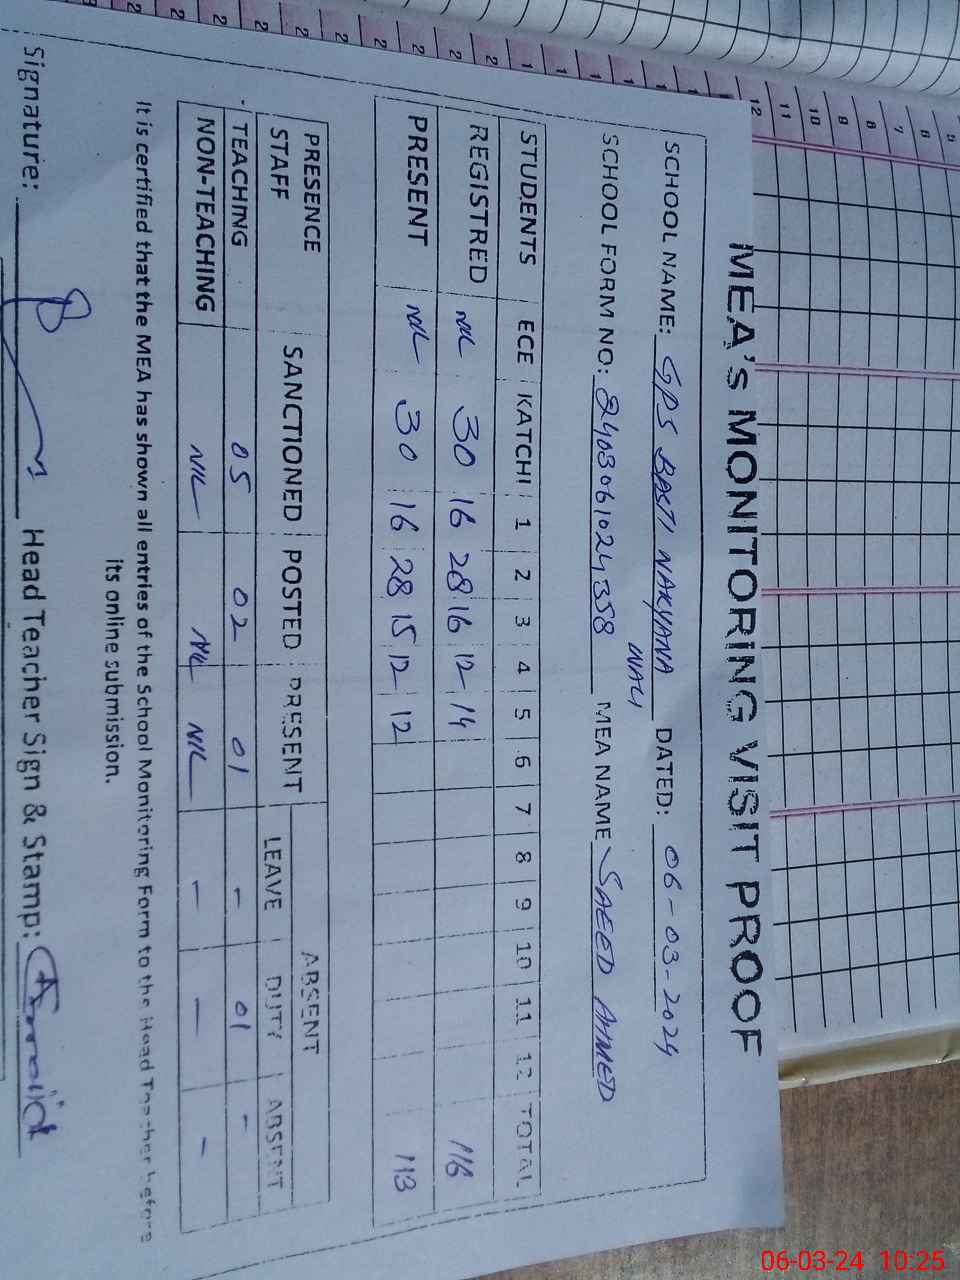 MEA's MONITORING VISIT PROOF
SCHOOL NAME: GPS BASTI NARYANA WALI DATED: 06-03-2024
SCHOOL FORM NO: 2403061024358 MEA NAME SAEED AHMED
STUDENTS ECE KATCHI 1 2 3 4 5 6 7 8 9 10 11 12 TOTAL
REGISTRED NIL 30 16 28 16 12 14 116
PRESENT NIL 30 16 28 15 12 12 113
PRESENCE STAFF SANCTIONED POSTED PRESENT ABSENT
LEAVE DUTY ABSENT
TEACHING 05 02 01 - 01 -
NON-TEACHING NIL NIL NIL - - -
It is certified that the MEA has shown all entries of the School Monitoring Form to the Head Teacher before
its online submission.
Signature: Head Teacher Sign & Stamp:
12 11 10 9 8 7 6 5
06-03-24 10:25